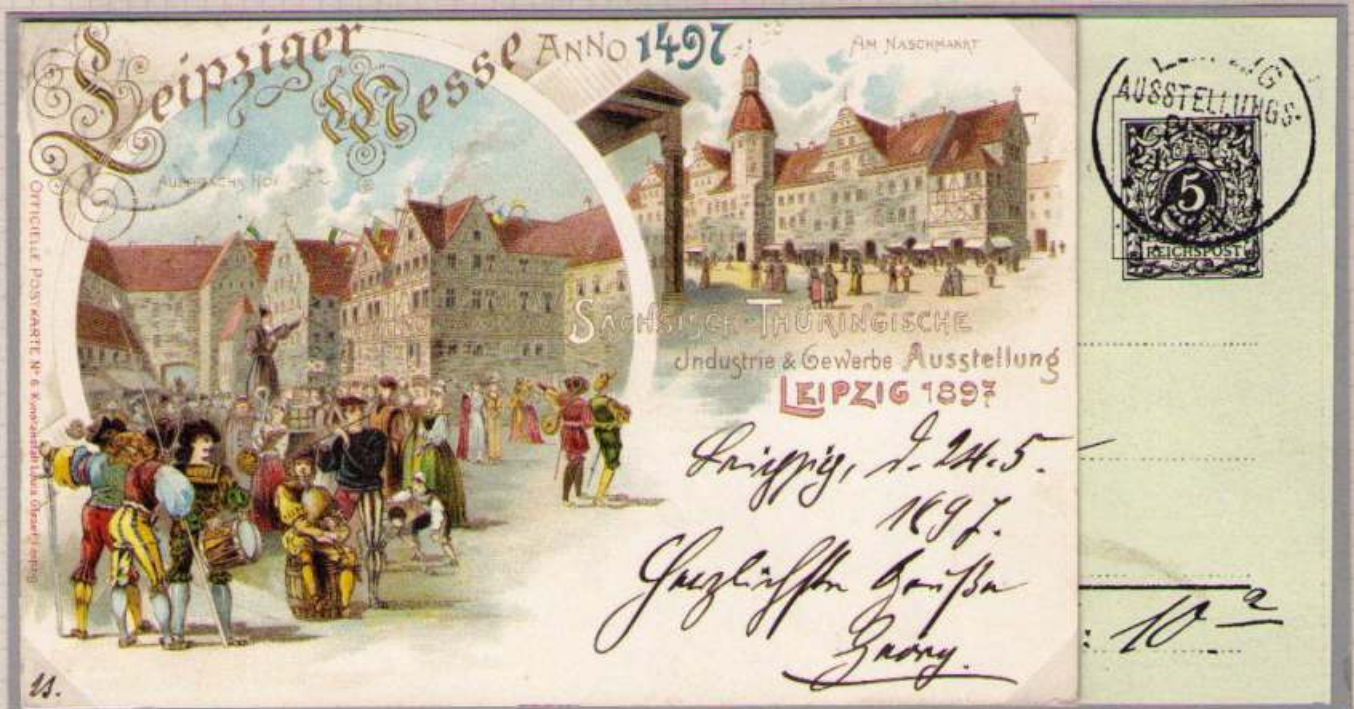 Leipziger
Messe
ANNO 1497
AM NASCHMARKT
AUERBACHS HOF
OFFICIELLE POSTKARTE Nº 6
SÄCHSISCH-THÜRINGISCHE
Industrie & Gewerbe Ausstellung
LEIPZIG 1897
Leipzig, d. 24.5.
1897.
Herzlichste Grüße
Georg.
21.
AUSSTELLUNGS-
5
REICHSPOST
10 a